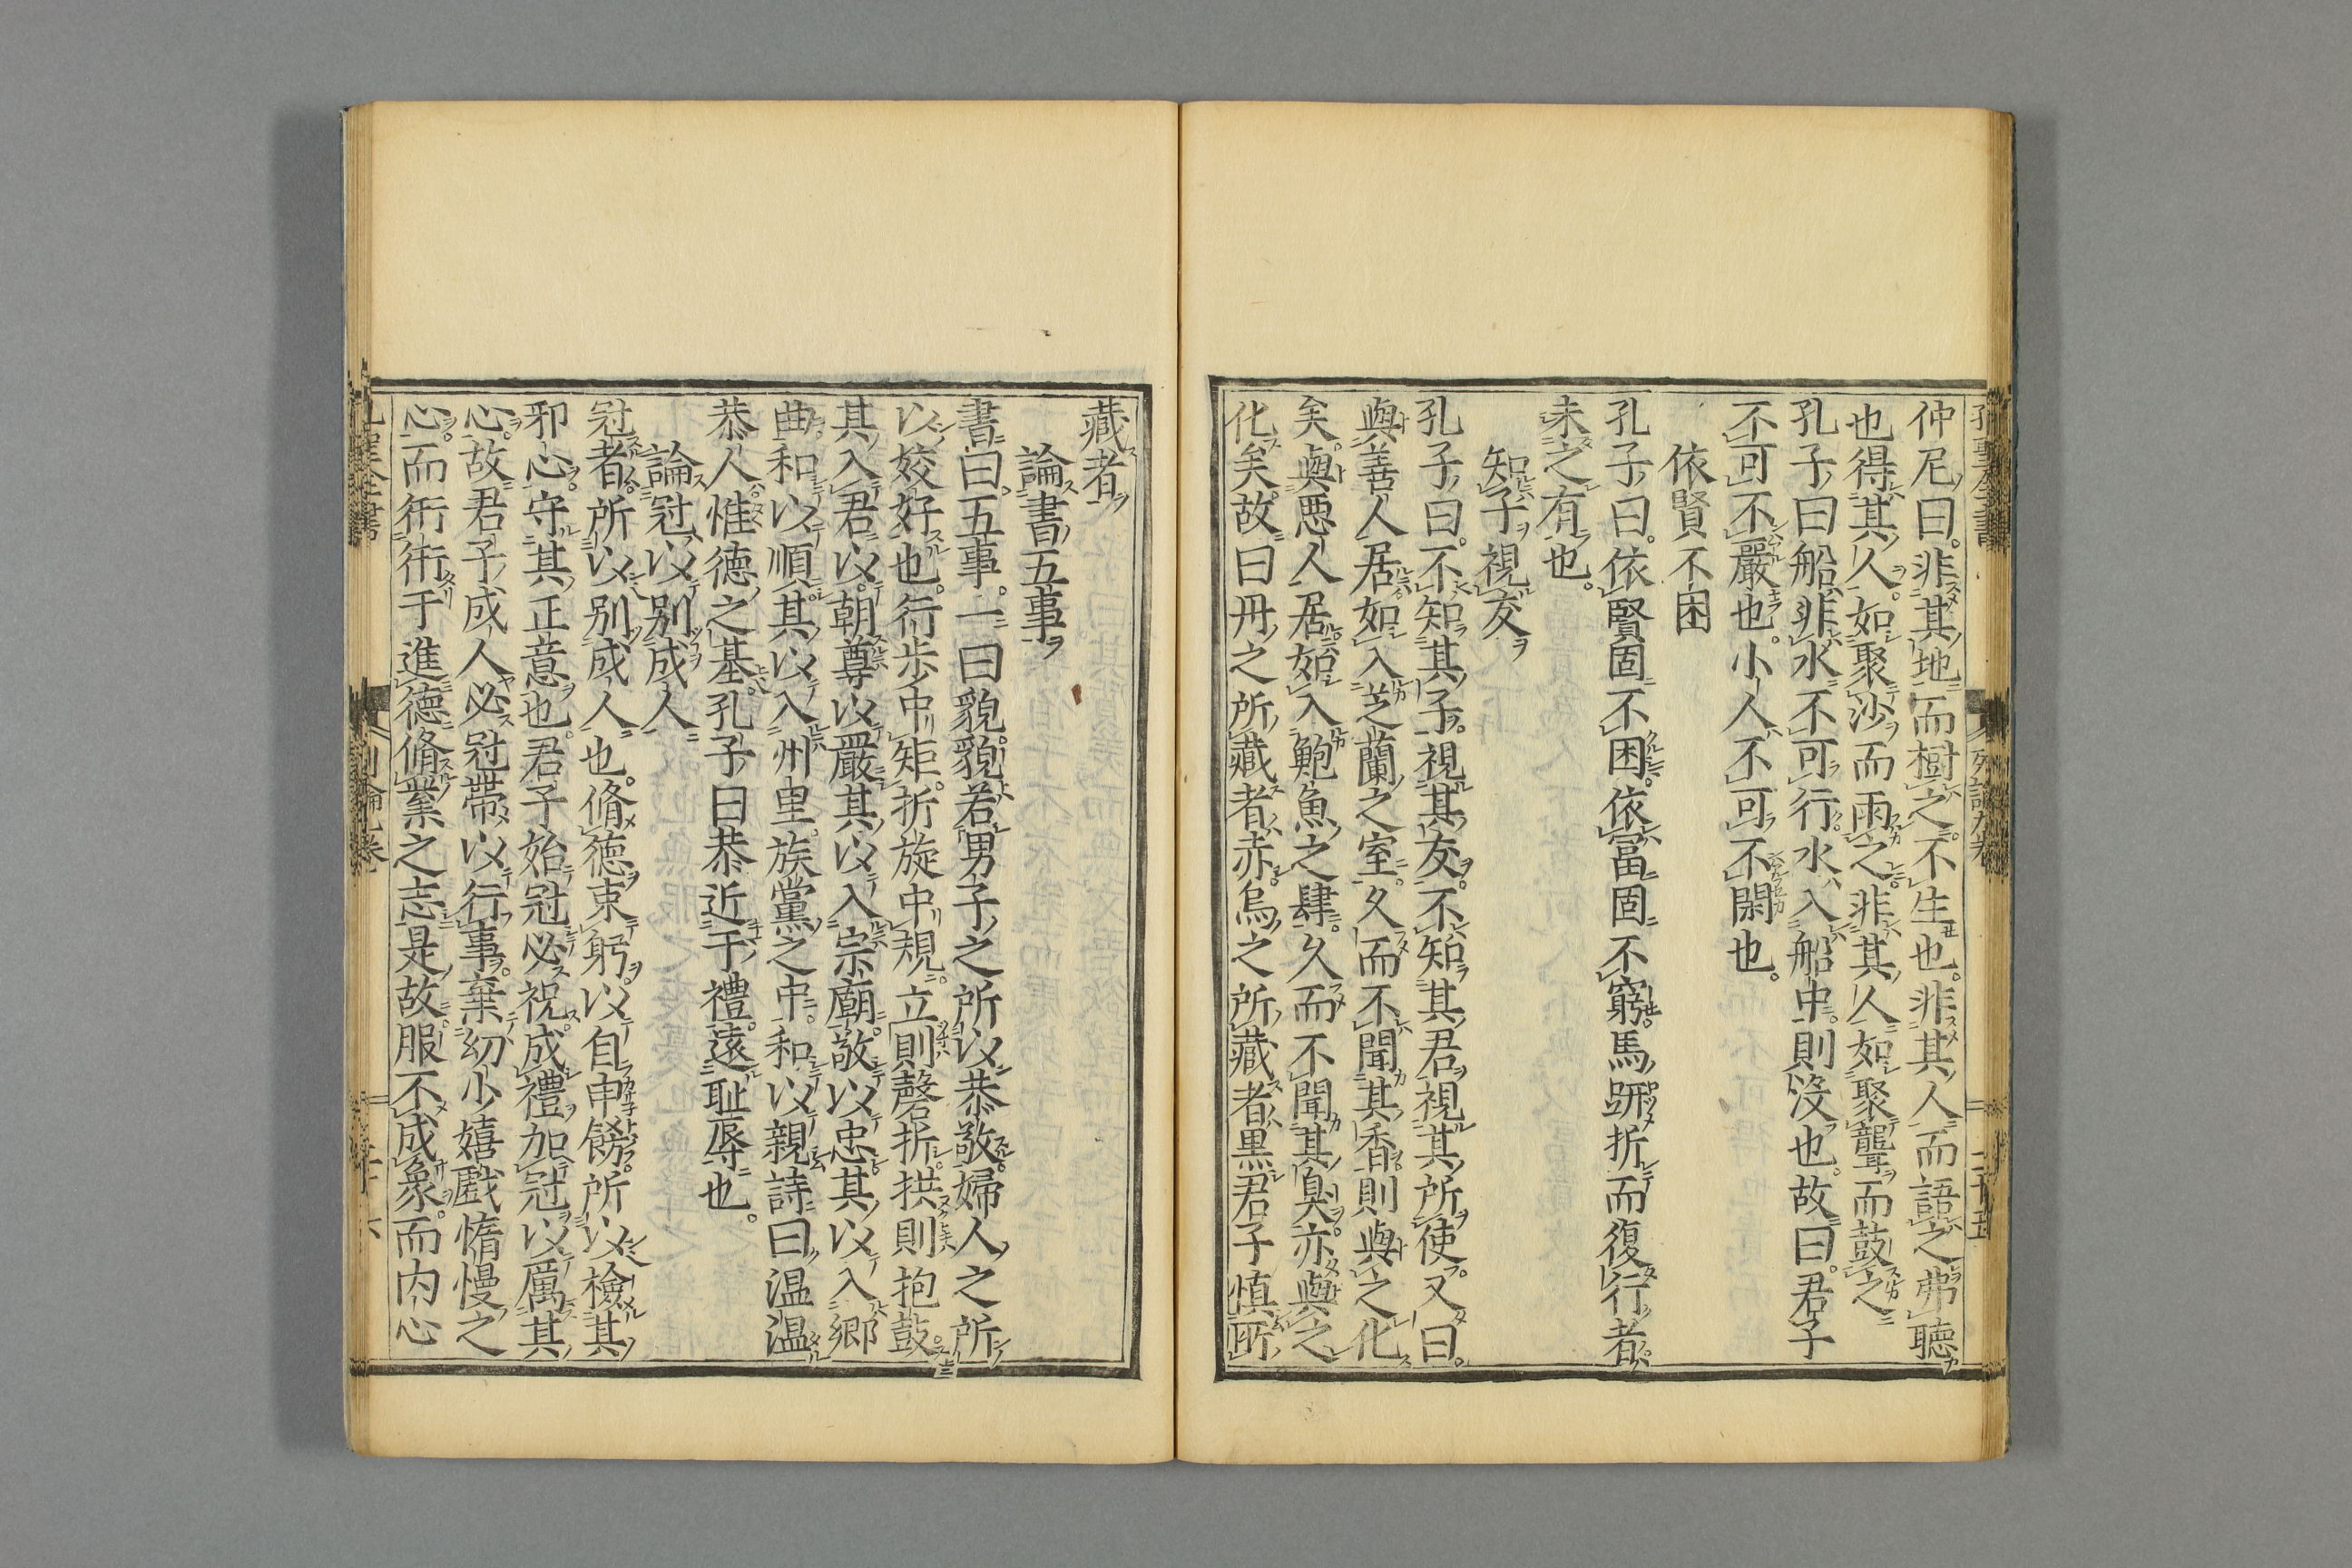 仲尼曰。非其地而樹之。不生也。非其人而語之弗聽
也得其人。如聚沙而雨之。非其人如聚聾而鼓之
孔子曰船非水不可行水入船中。則沒也。故曰。君子
不可不嚴也。小人不可不閑也。
依賢不困
孔子曰。依賢固不困。依富固不窮。馬趼折而復行者。
未之有也。
知子視友
孔子曰。不知其子。視其友。不知其君視其所使。又曰。
與善人居。如入芝蘭之室。久而不聞其香。則與之化
矣。與惡人居。如入鮑魚之肆。久而不聞其臭。亦與之
化矣。故曰丹之所藏者赤。烏之所藏者黒君子慎所
藏者
論書五事
書曰。五事。一曰貌。貌若男子之所以恭敬。婦人之所
以姣好也。行步中矩。折旋中規。立則磬折。拱則抱鼓。
其入君以朝尊以嚴其以入宗廟。敬以忠其以入鄉
曲。和以順。其以入州里。族黨之中。和以親。詩曰。温温
恭人。惟德之基。孔子曰恭近于禮。遠耻辱也。
論冠以別成人
冠者。所以別成人也。脩德束躬。以自申飭。所以檢其
邪心。守其正意也。君子始冠必祝。成禮加冠以厲其
心。故君子成人必冠帶。以行事。棄幼小嬉戲惰慢之
心。而衎衎于進德脩業之志。是故服不成象。而内心